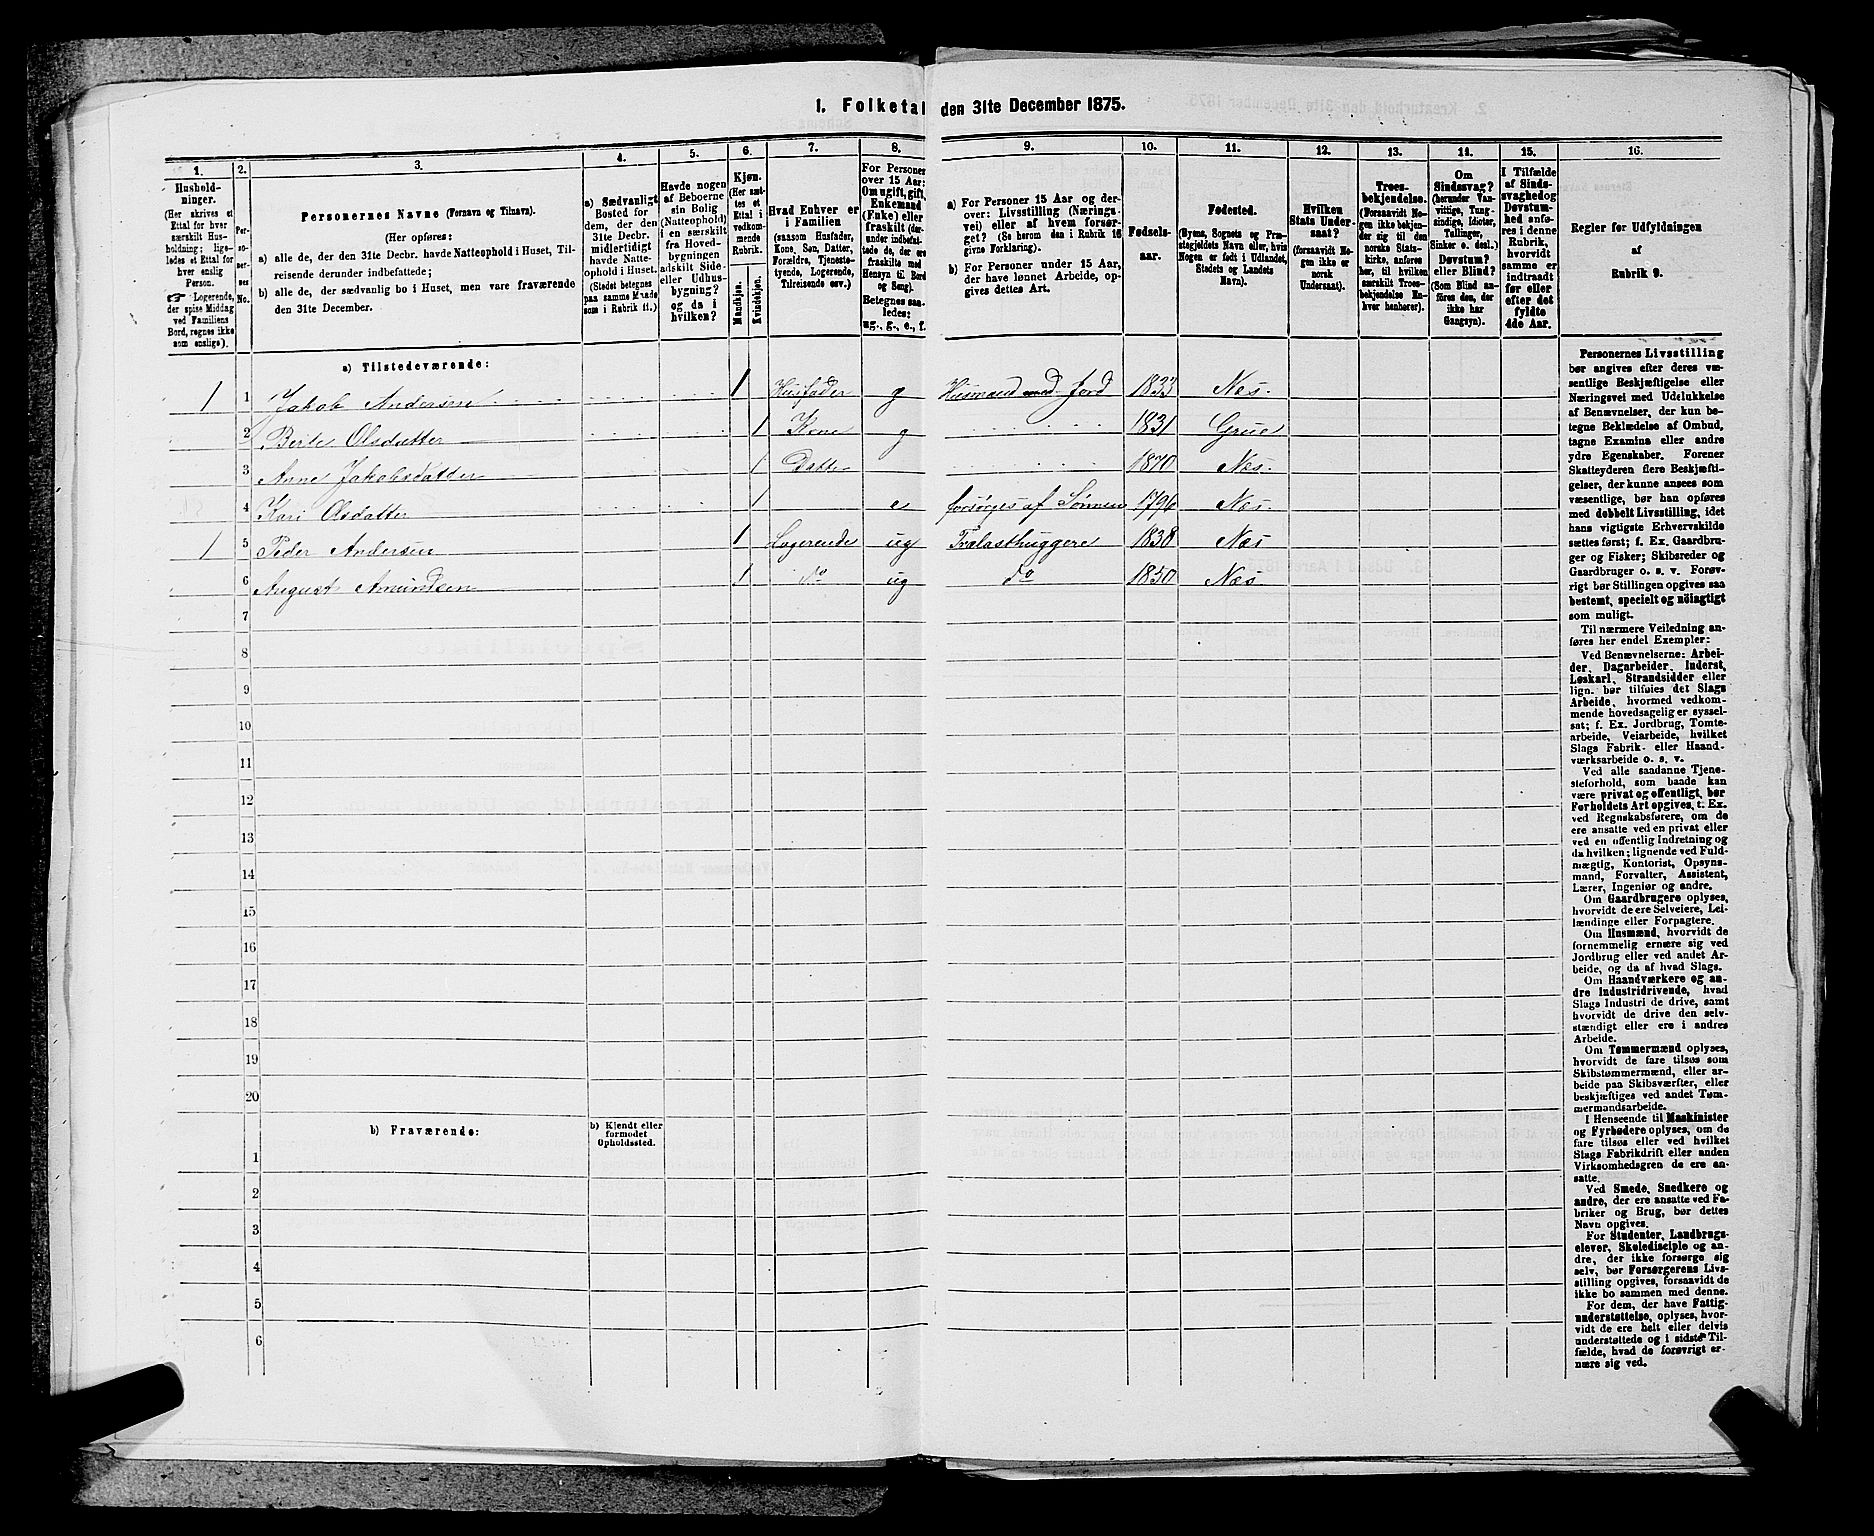 1. Folketal den 31te December 1875.
1. 2. 3. 4. 5. 6. 7. 8. 9. 10. 11. 12. 13. 14. 15. 16.
Hushold-
ninger.
(Her skrives et
Ettal for hver
særskilt Hus-
holdning; lige-
ledes et Ettal for
hver enslig
Person.
☞ Logerende,
der spise Middag
ved Familiens
Bord, regnes ikke
som enslige).
Per-
so-
ner-
nes
No.
Personernes Navne (Fornavn og Tilnavn).
(Her opføres:
a) alle de, der den 31te Decbr. havde Natteophold i Huset, Til-
reisende derunder indbefattede;
b) alle de, der sædvanlig bo i Huset, men vare fraværende
den 31te December.
a) Sædvanligt
Bosted for
dem, der den
31te Decbr.
midlertidigt
havde Natte-
ophold i Huset.
(Stedet betegnes
paa samme Maade
som i Rubrik 11.)
Havde nogen
af Beboerne
sin Bolig
(Natteophold)
i en særskilt
fra Hoved-
bygningen
adskilt Side-
eller Udhus-
bygning?
og da i
hvilken?
Kjøn.
(Her sæt-
tes et
Ettal i
vedkom-
mende
Rubrik.
Mandkjøn.
Kvindekjøn.
Hvad Enhver er
i Familien
(saasom Husfader,
Kone, Søn, Datter,
Forældre, Tjeneste-
tyende, Logerende,
Tilreisende osv.)
For Personer
over 15 Aar:
Om ugift, gift,
Enkemand
(Enke) eller
fraskilt (der-
under indbefat-
tede de, der ere
fraskilte med
Hensyn til Bord
og Seng).
Betegnes saa-
ledes:
ug., g., e., f.
a) For Personer 15 Aar og der-
over: Livsstilling (Nærings-
vei) eller af hvem forsør-
get? (Se herom den i Rubrik 16
givne Forklaring).
b) For Personer under 15 Aar,
der have lønnet Arbeide, op-
gives dettes Art.
Fødsels-
aar.
Fødested.
(Byens, Sognets og Præ-
stegjeldets Navn, eller, hvis
Nogen er født i Udlandet,
Stedets og Landets
Navn).
Hvilken
Stats Under-
saat?
(forsaavidt No-
gen ikke er
norsk
Undersaat).
Troes-
bekjendelse.
(Forsaavidt No-
gen ikke bekjen-
der sig til den
norske Stats-
kirke, anføres
her, til hvilken
særskilt Troes-
bekjendelse En-
hver henhører).
Om
Sindssvag?
(herunder Van-
vittige, Tung-
sindige, Idioter,
Tullinger,
Sinker o. desl.)
Døvstum?
eller Blind?
(Som Blind an-
føres den, der
ikke har
Gangsyn).
I Tilfælde
af Sinds-
svaghed og
Døvstum-
hed anfø-
res i denne
Rubrik,
hvorvidt
samme er
indtraadt
før eller
efter det
fyldte
4de Aar.
Regler for Udfyldningen
af
Rubrik 9.
a) Tilstedeværende:
1 1 Jakob Andersen 1 Husfader g Husmand med Jord 1833 Næs.
2 Berte Olsdatter 1 Kone g 1831 Grue
3 Anne Jakobsdatter 1 Datter 1870 Næs.
4 Kari Olsdatter 1 e forsørges af Sønnen 1796 Næs
1 5 Peder Andersen 1 Logerende ug Trælasthuggere 1838 Næs
6 August Amundsen 1 do ug do 1850 Næs
7
8
9
10
11
12
13
14
15
16
17
18
19
20
b) Fraværende:
b) Kjendt eller
formodet
Opholdssted.
1
2
3
4
5
6
Personernes Livsstilling
bør angives efter deres væ-
sentlige Beskjæftigelse eller
Næringsvei med Udelukkelse
af Benævnelser, der kun be-
tegne Beklædelse af Ombud,
tagne Examina eller andre
ydre Egenskaber. Forener
Skatteyderen flere Beskjæfti-
gelser, der kunne ansees som
væsentlige, bør han opføres
med dobbelt Livsstilling, idet
hans vigtigste Erhvervskilde
sættes først; f. Ex. Gaardbru-
ger og Fisker; Skibsreder og
Gaardbruger o. s. v. Forøv-
rigt bør Stillingen opgives saa
bestemt, specielt og nöiagtigt
som muligt.
Til nærmere Veiledning an-
føres her endel Exempler:
Ved Benævnelserne: Arbei-
der, Dagarbeider, Inderst,
Løskarl, Strandsidder eller
lign. bør tilføies det Slags
Arbeide, hvormed vedkom-
mende hovedsagelig er syssel-
sat; f. Ex. Jordbrug, Tomte-
arbeide, Veiarbeide, hvilket
Slags Fabrik- eller Haand-
værksarbeide o. s. v.
Ved alle saadanne Tjene-
steforhold, som baade kan
være privat og offentligt, bør
Forholdets Art opgives, t. Ex.
ved Regnskabsførere, om de
ere ansatte ved en privat eller
ved en offentlig Indretning og
da hvilken; lignende ved Fuld-
mægtig, Kontorist, Opsyns-
mand, Forvalter, Assistent,
Lærer, Ingeniør og andre.
Om Gaardbrugere oplyses,
hvorvidt de ere Selveiere, Lei-
lændinge eller Forpagtere.
Om Husmænd, hvorvidt de
fornemmelig ernære sig ved
Jordbrug eller ved andet Ar-
beide, og da af hvad Slags.
Om Haandværkere og an-
dre Industridrivende, hvad
Slags Industri de drive, samt
hvorvidt de drive den selv-
stændigt eller ere i andres
Arbeide.
Om Tømmermænd oplyses,
hvorvidt de fare tilsøs som
Skibstømmermænd, eller ar-
beide paa Skibsværfter, eller
beskjæftiges ved andet Tøm-
mermandsarbeide.
I Henseende til Maskinister
og Fyrbødere oplyses, om de
fare tilsøs eller ved hvilket
Slags Fabrikdrift eller anden
Virksomhedsgren de ere an-
satte.
Ved Smede, Snedkere og
andre, der ere ansatte ved Fa-
briker og Brug, bør dettes
Navn opgives.
For Studenter, Landbrugs-
elever, Skoledisciple og an-
dre, der ikke forsørge sig
selv, bør Forsørgerens Livs-
stilling opgives, forsaavidt de
ikke bo sammen med denne.
For dem, der have Fattig-
understøttelse, oplyses, hvor-
vidt de ere helt eller delvis
understøttede og i sidste Til-
fælde, hvad de forøvrigt er-
nære sig ved.